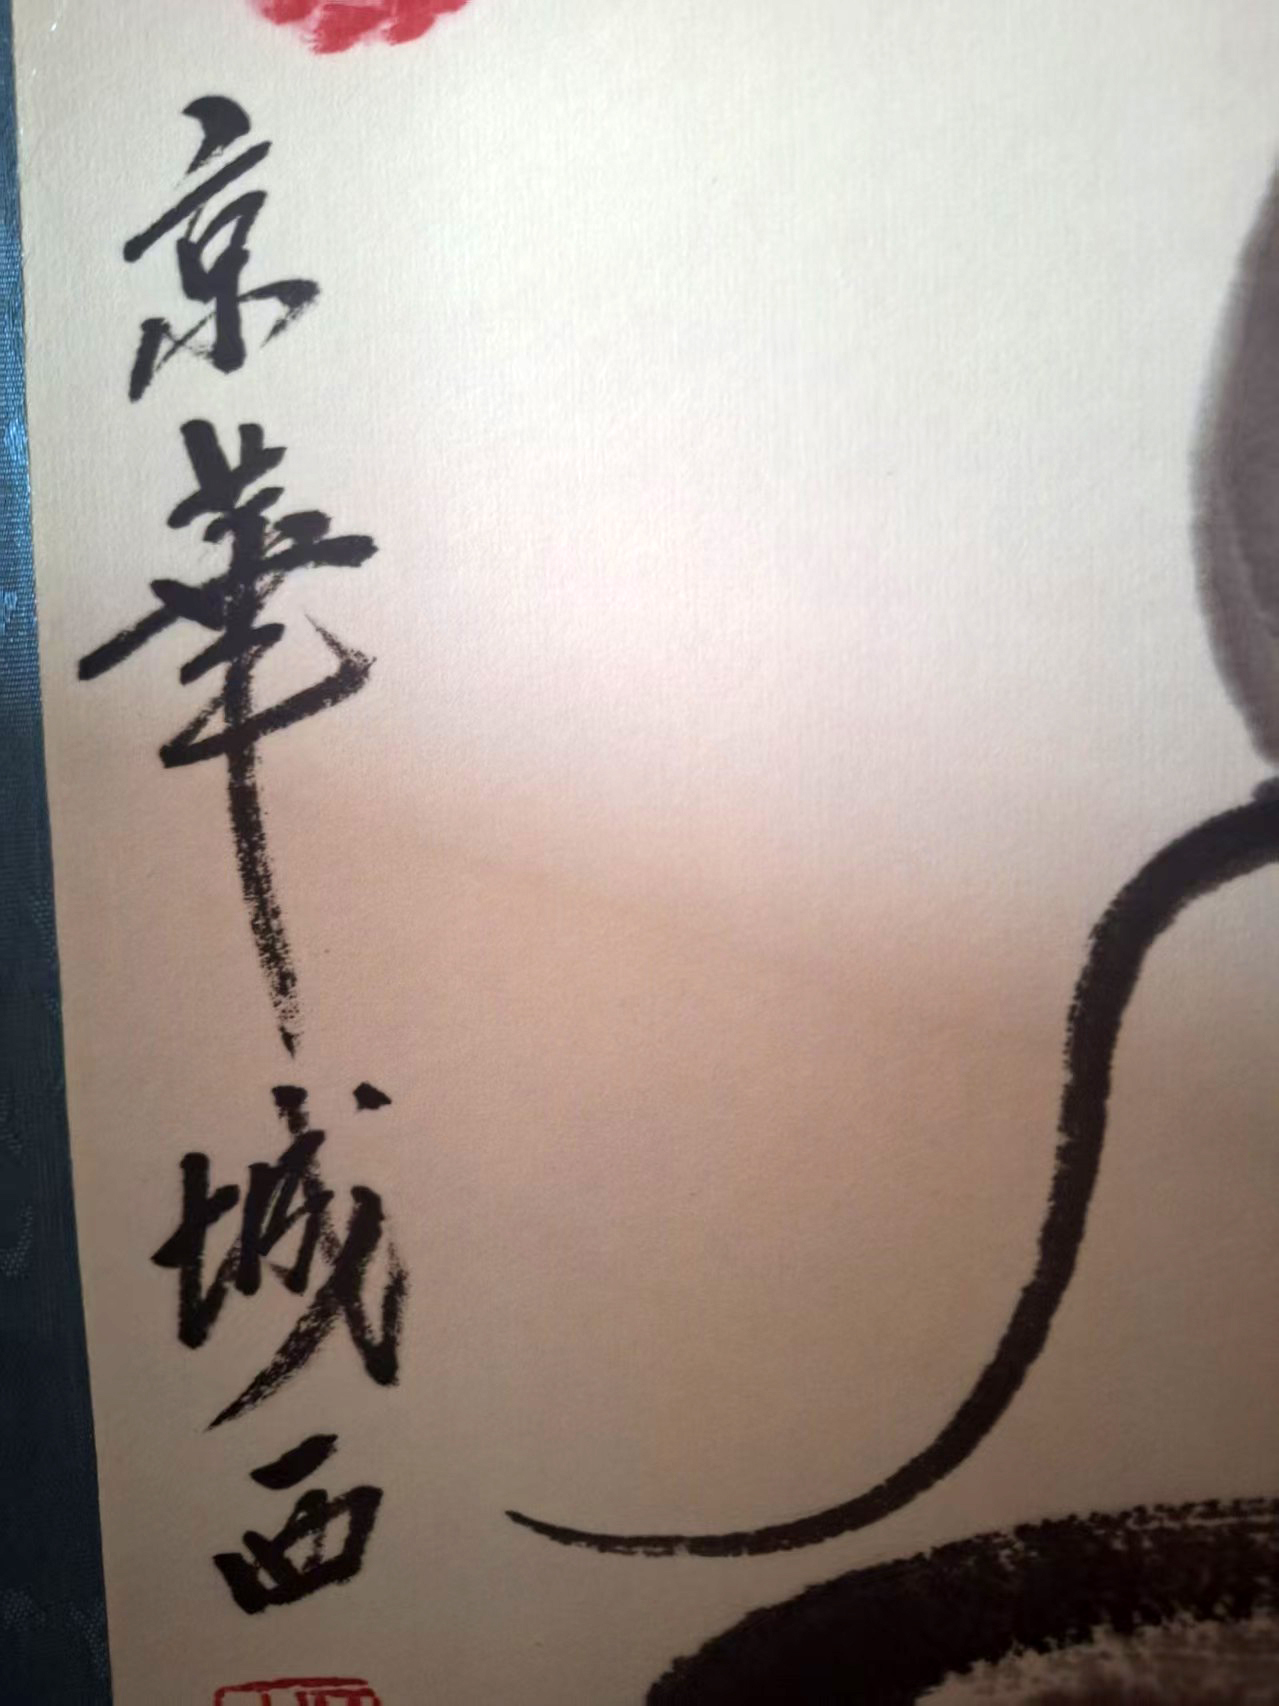 京華城西